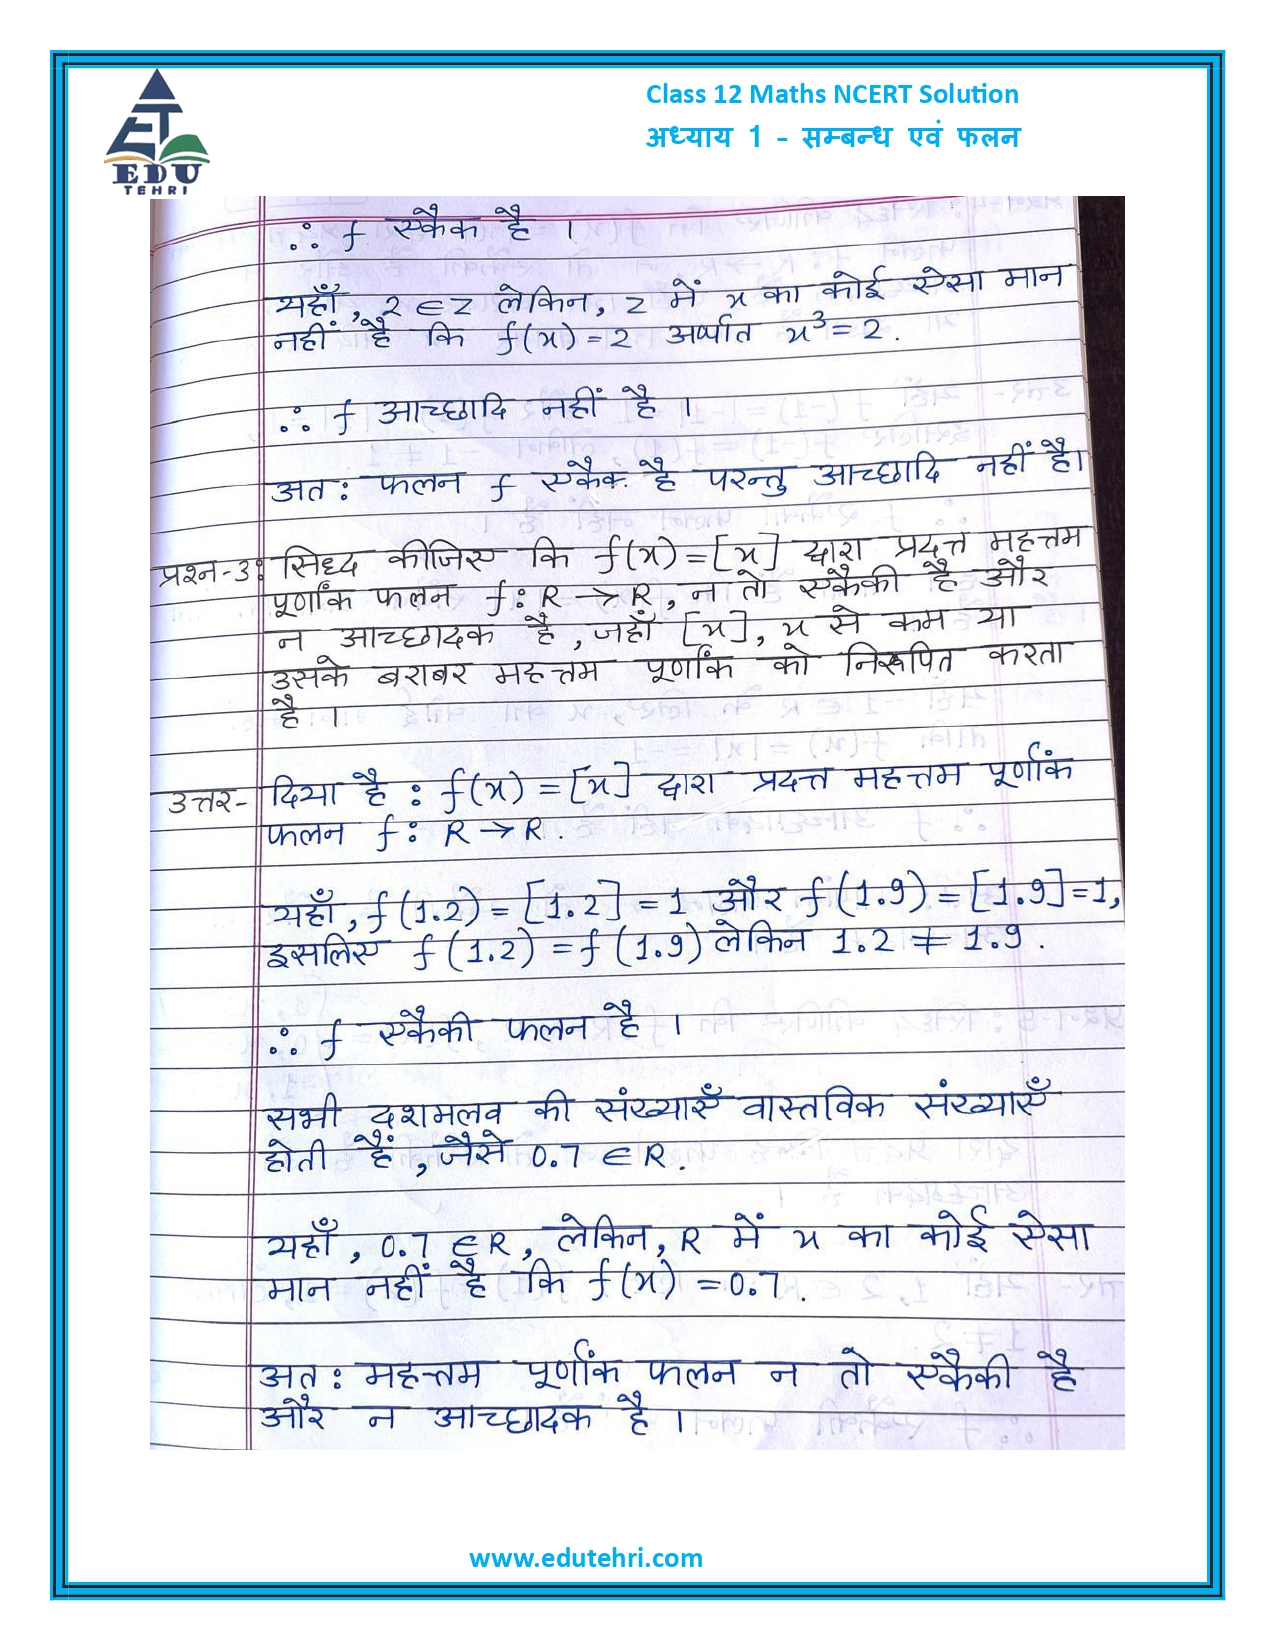 Class 12 Maths NCERT Solution
अध्याय 1 - सम्बन्ध एवं फलन
EDU
TEHRI
∴ f एकैक है ।
यहाँ, 2 ∈ Z लेकिन, Z में x का कोई ऐसा मान
नहीं है कि f(x) = 2 अर्थात x³ = 2.
∴ f आच्छादि नहीं है ।
अत: फलन f एकैक है परन्तु आच्छादि नहीं है।
प्रश्न-3: सिध्द कीजिए कि f(x) = [x] द्वारा प्रदत्त महत्तम
पूर्णांक फलन f: R → R, न तो एकैकी है और
न आच्छादक है, जहाँ [x], x से कम या
उसके बराबर महत्तम पूर्णांक को निरूपित करता
है ।
उत्तर- दिया है : f(x) = [x] द्वारा प्रदत्त महत्तम पूर्णांक
फलन f: R → R.
यहाँ, f(1.2) = [1.2] = 1 और f(1.9) = [1.9] = 1,
इसलिए f(1.2) = f(1.9) लेकिन 1.2 ≠ 1.9.
∴ f एकैकी फलन है ।
सभी दशमलव की संख्याएँ वास्तविक संख्याएँ
होती हैं, जैसे 0.7 ∈ R.
यहाँ, 0.7 ∈ R, लेकिन, R में x का कोई ऐसा
मान नहीं है कि f(x) = 0.7.
अत: महत्तम पूर्णांक फलन न तो एकैकी है
और न आच्छादक है ।
www.edutehri.com